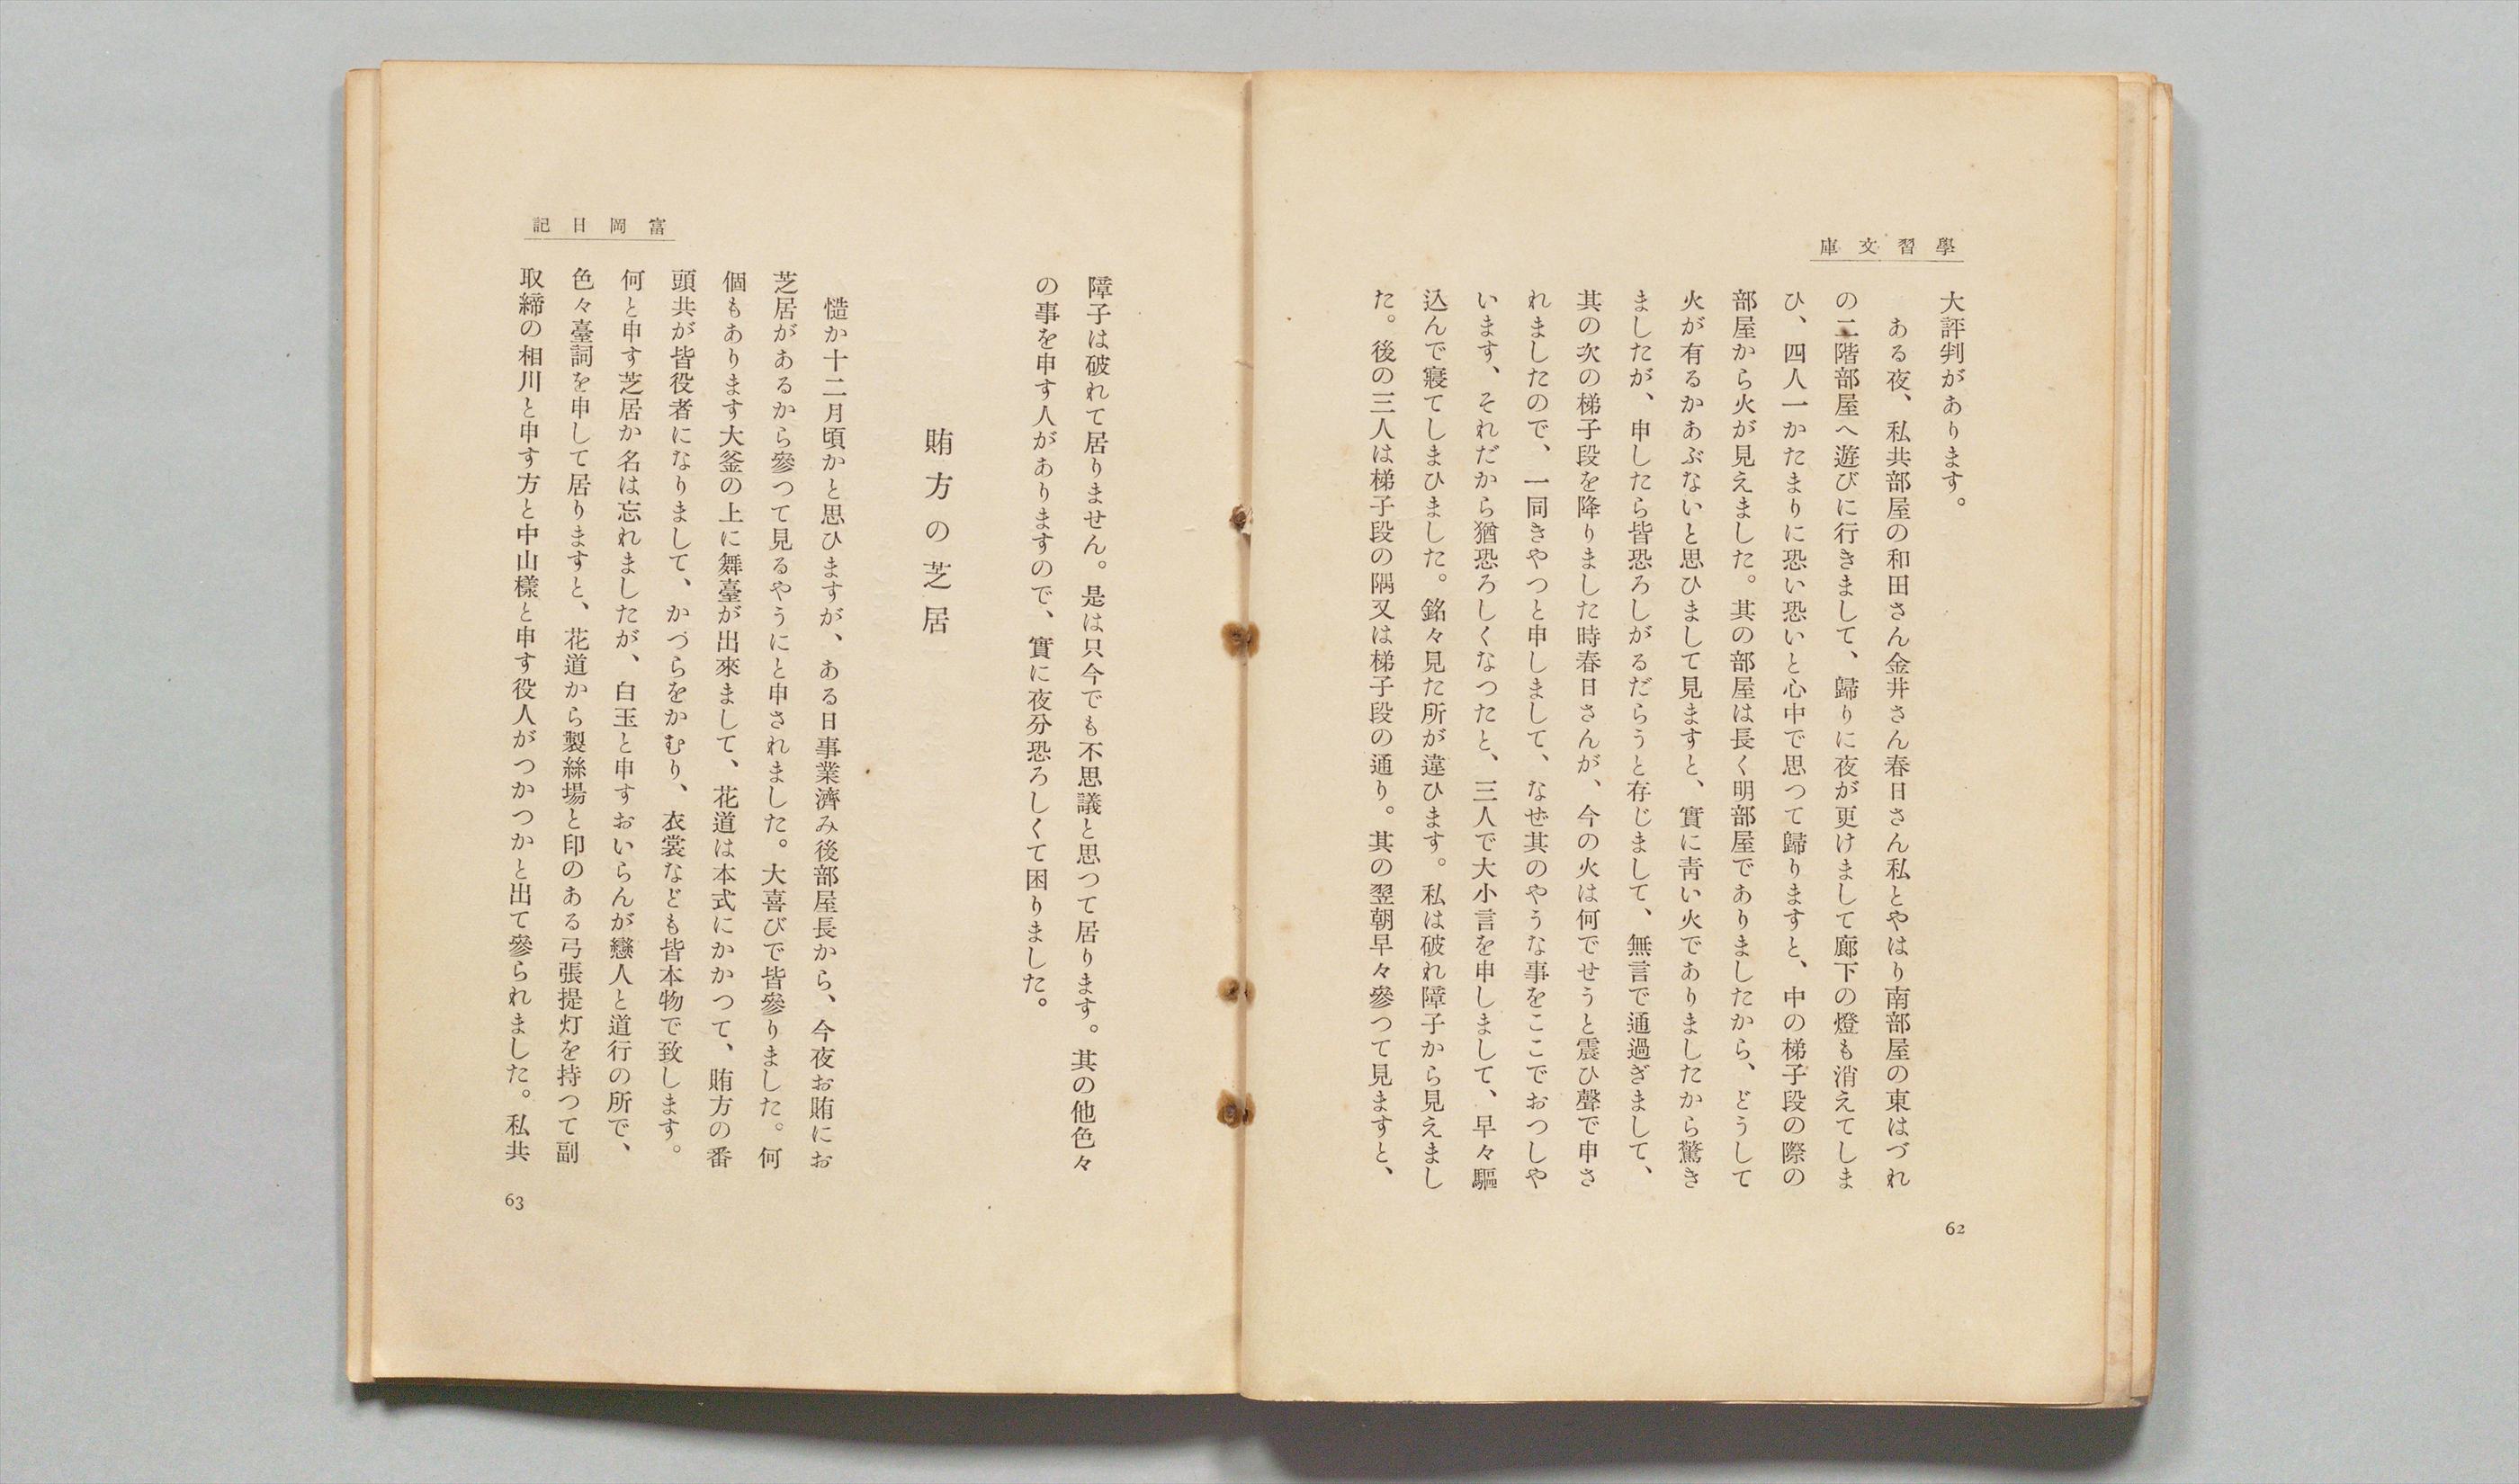 學習文庫
大評判があります。
ある夜、私共部屋の和田さん金井さん春日さん私とやはり南部屋の東はづれ
の二階部屋へ遊びに行きまして、歸りに夜が更けまして廊下の燈も消えてしま
ひ、四人一かたまりに恐い恐いと心中で思つて歸りますと、中の梯子段の際の
部屋から火が見えました。其の部屋は長く明部屋でありましたから、どうして
火が有るかあぶないと思ひまして見ますと、實に靑い火でありましたから驚き
ましたが、申したら皆恐ろしがるだらうと存じまして、無言で通過ぎまして、
其の次の梯子段を降りました時春日さんが、今の火は何でせうと震ひ聲で申さ
れましたので、一同きやつと申しまして、なぜ其のやうな事をここでおつしや
います、それだから猶恐ろしくなつたと、三人で大小言を申しまして、早々驅
込んで寢てしまひました。銘々見た所が違ひます。私は破れ障子から見えまし
た。後の三人は梯子段の隅又は梯子段の通り。其の翌朝早々參つて見ますと、
62
富岡日記
障子は破れて居りません。是は只今でも不思議と思つて居ります。其の他色々
の事を申す人がありますので、實に夜分恐ろしくて困りました。
賄方の芝居
慥か十二月頃かと思ひますが、ある日事業濟み後部屋長から、今夜お賄にお
芝居があるから參つて見るやうにと申されました。大喜びで皆參りました。何
個もあります大釜の上に舞臺が出來まして、花道は本式にかかつて、賄方の番
頭共が皆役者になりまして、かづらをかむり、衣裳なども皆本物で致します。
何と申す芝居か名は忘れましたが、白玉と申すおいらんが戀人と道行の所で、
色々臺詞を申して居りますと、花道から製絲場と印のある弓張提灯を持つて副
取締の相川と申す方と中山樣と申す役人がつかつかと出て參られました。私共
63